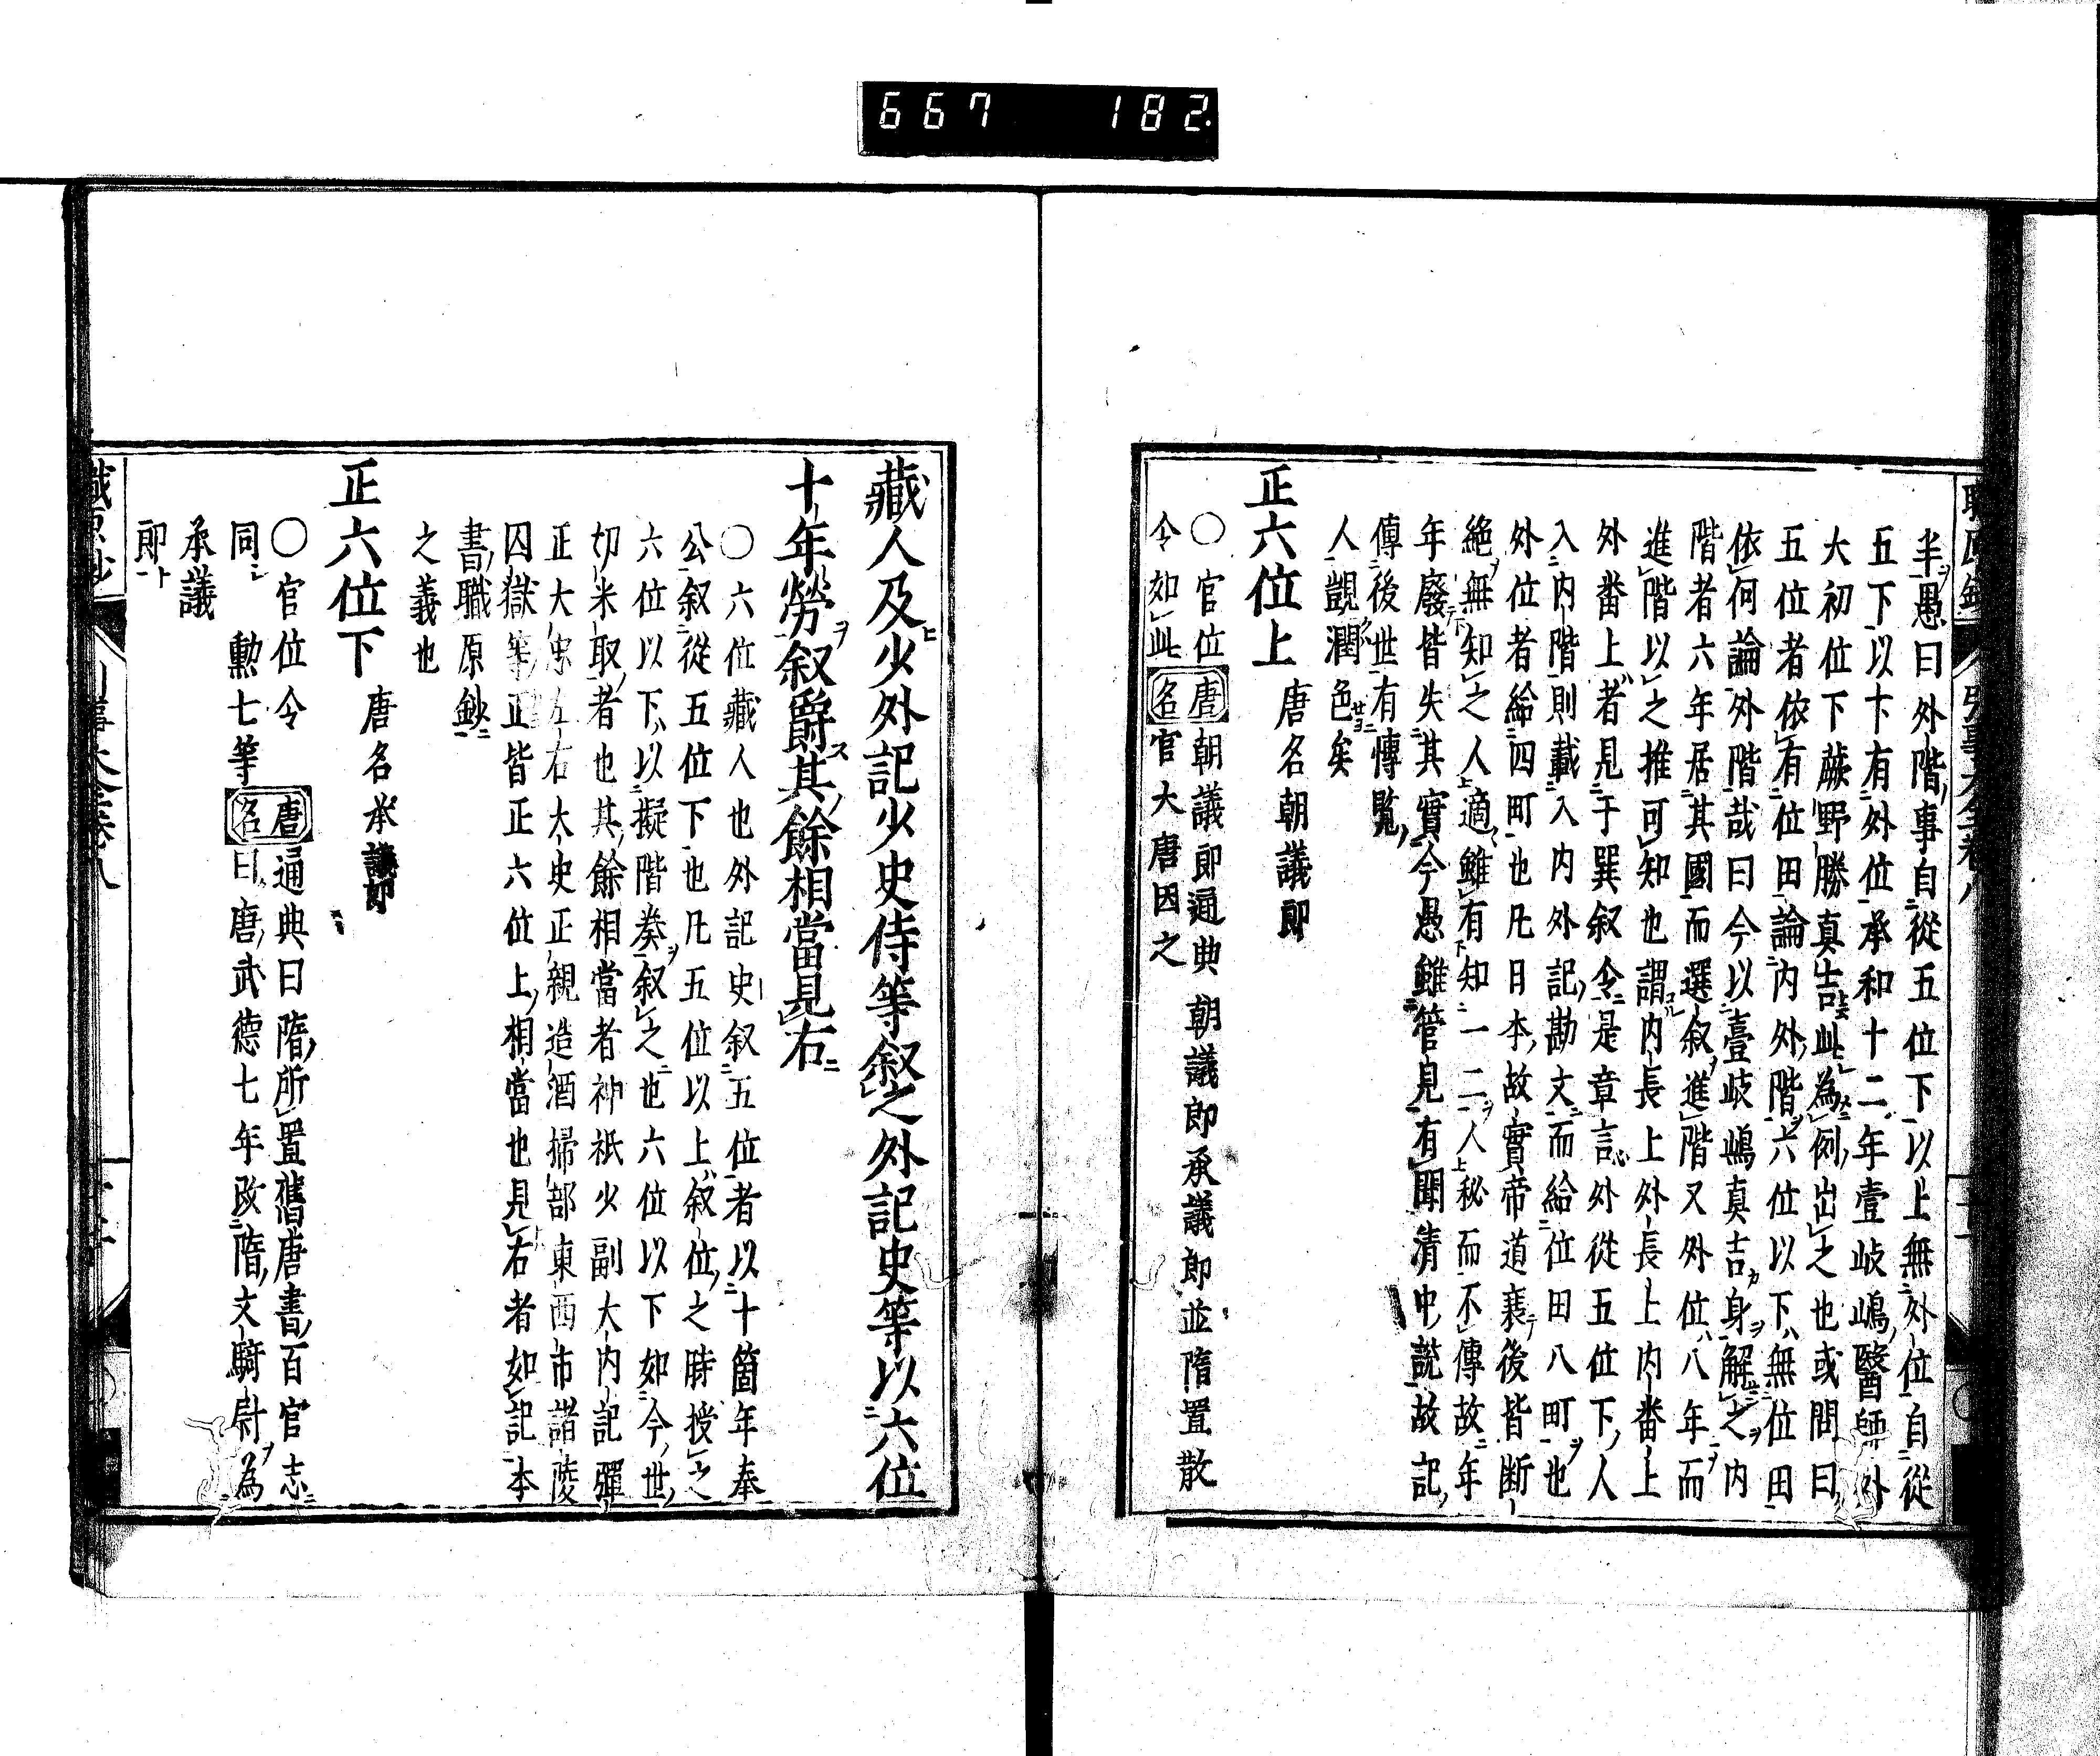 667 182.
半愚曰外階事自從五位下以上無外位自從
五下以下有外位承和十二年壹岐嶋醫師外
大初位下蕨野勝真吉此為例出之也或問曰
五位者依有位田論内外階六位以下無位田
依何論外階哉曰今以壹岐嶋真吉身解之内
階者六年居其國而選叙進階又外位八年而
進階以之推可知也謂内長上外長上内番上
外番上者見于巽叙令是章言外從五位下人
入内階則載入内外記勘文而給位田八町也
外位者給四町也凡日本故實帝道衰後皆断
絶無知之人適雖有知一二人秘而不傳故年
年廢皆失其實今愚雖管見有聞清中説故記
傳後世有博覧
人覬潤色矣
正六位上 唐名朝議郎
○官位唐朝議郎通典 朝議郎承議郎並隋置散
令如此名官大唐因之
藏人及少外記少史侍等叙之外記史等以六位
十年勞叙爵其餘相當見右
○六位藏人也外記史叙五位者以十箇年奉
公叙從五位下也凡五位以上叙位之時授之
六位以下以擬階奏叙之也六位以下如今世
切米取者也其餘相當者神祇少副大内記彈
正大忠左右大史正親造酒掃部東西市諸陵
囚獄等正皆正六位上相當也見右者如記本
書職原鈔
之義也
正六位下 唐名承議郎
○官位令 唐通典曰隋所置舊唐書百官志
同 勲七等 名曰唐武德七年改隋文騎尉為
承議
郎